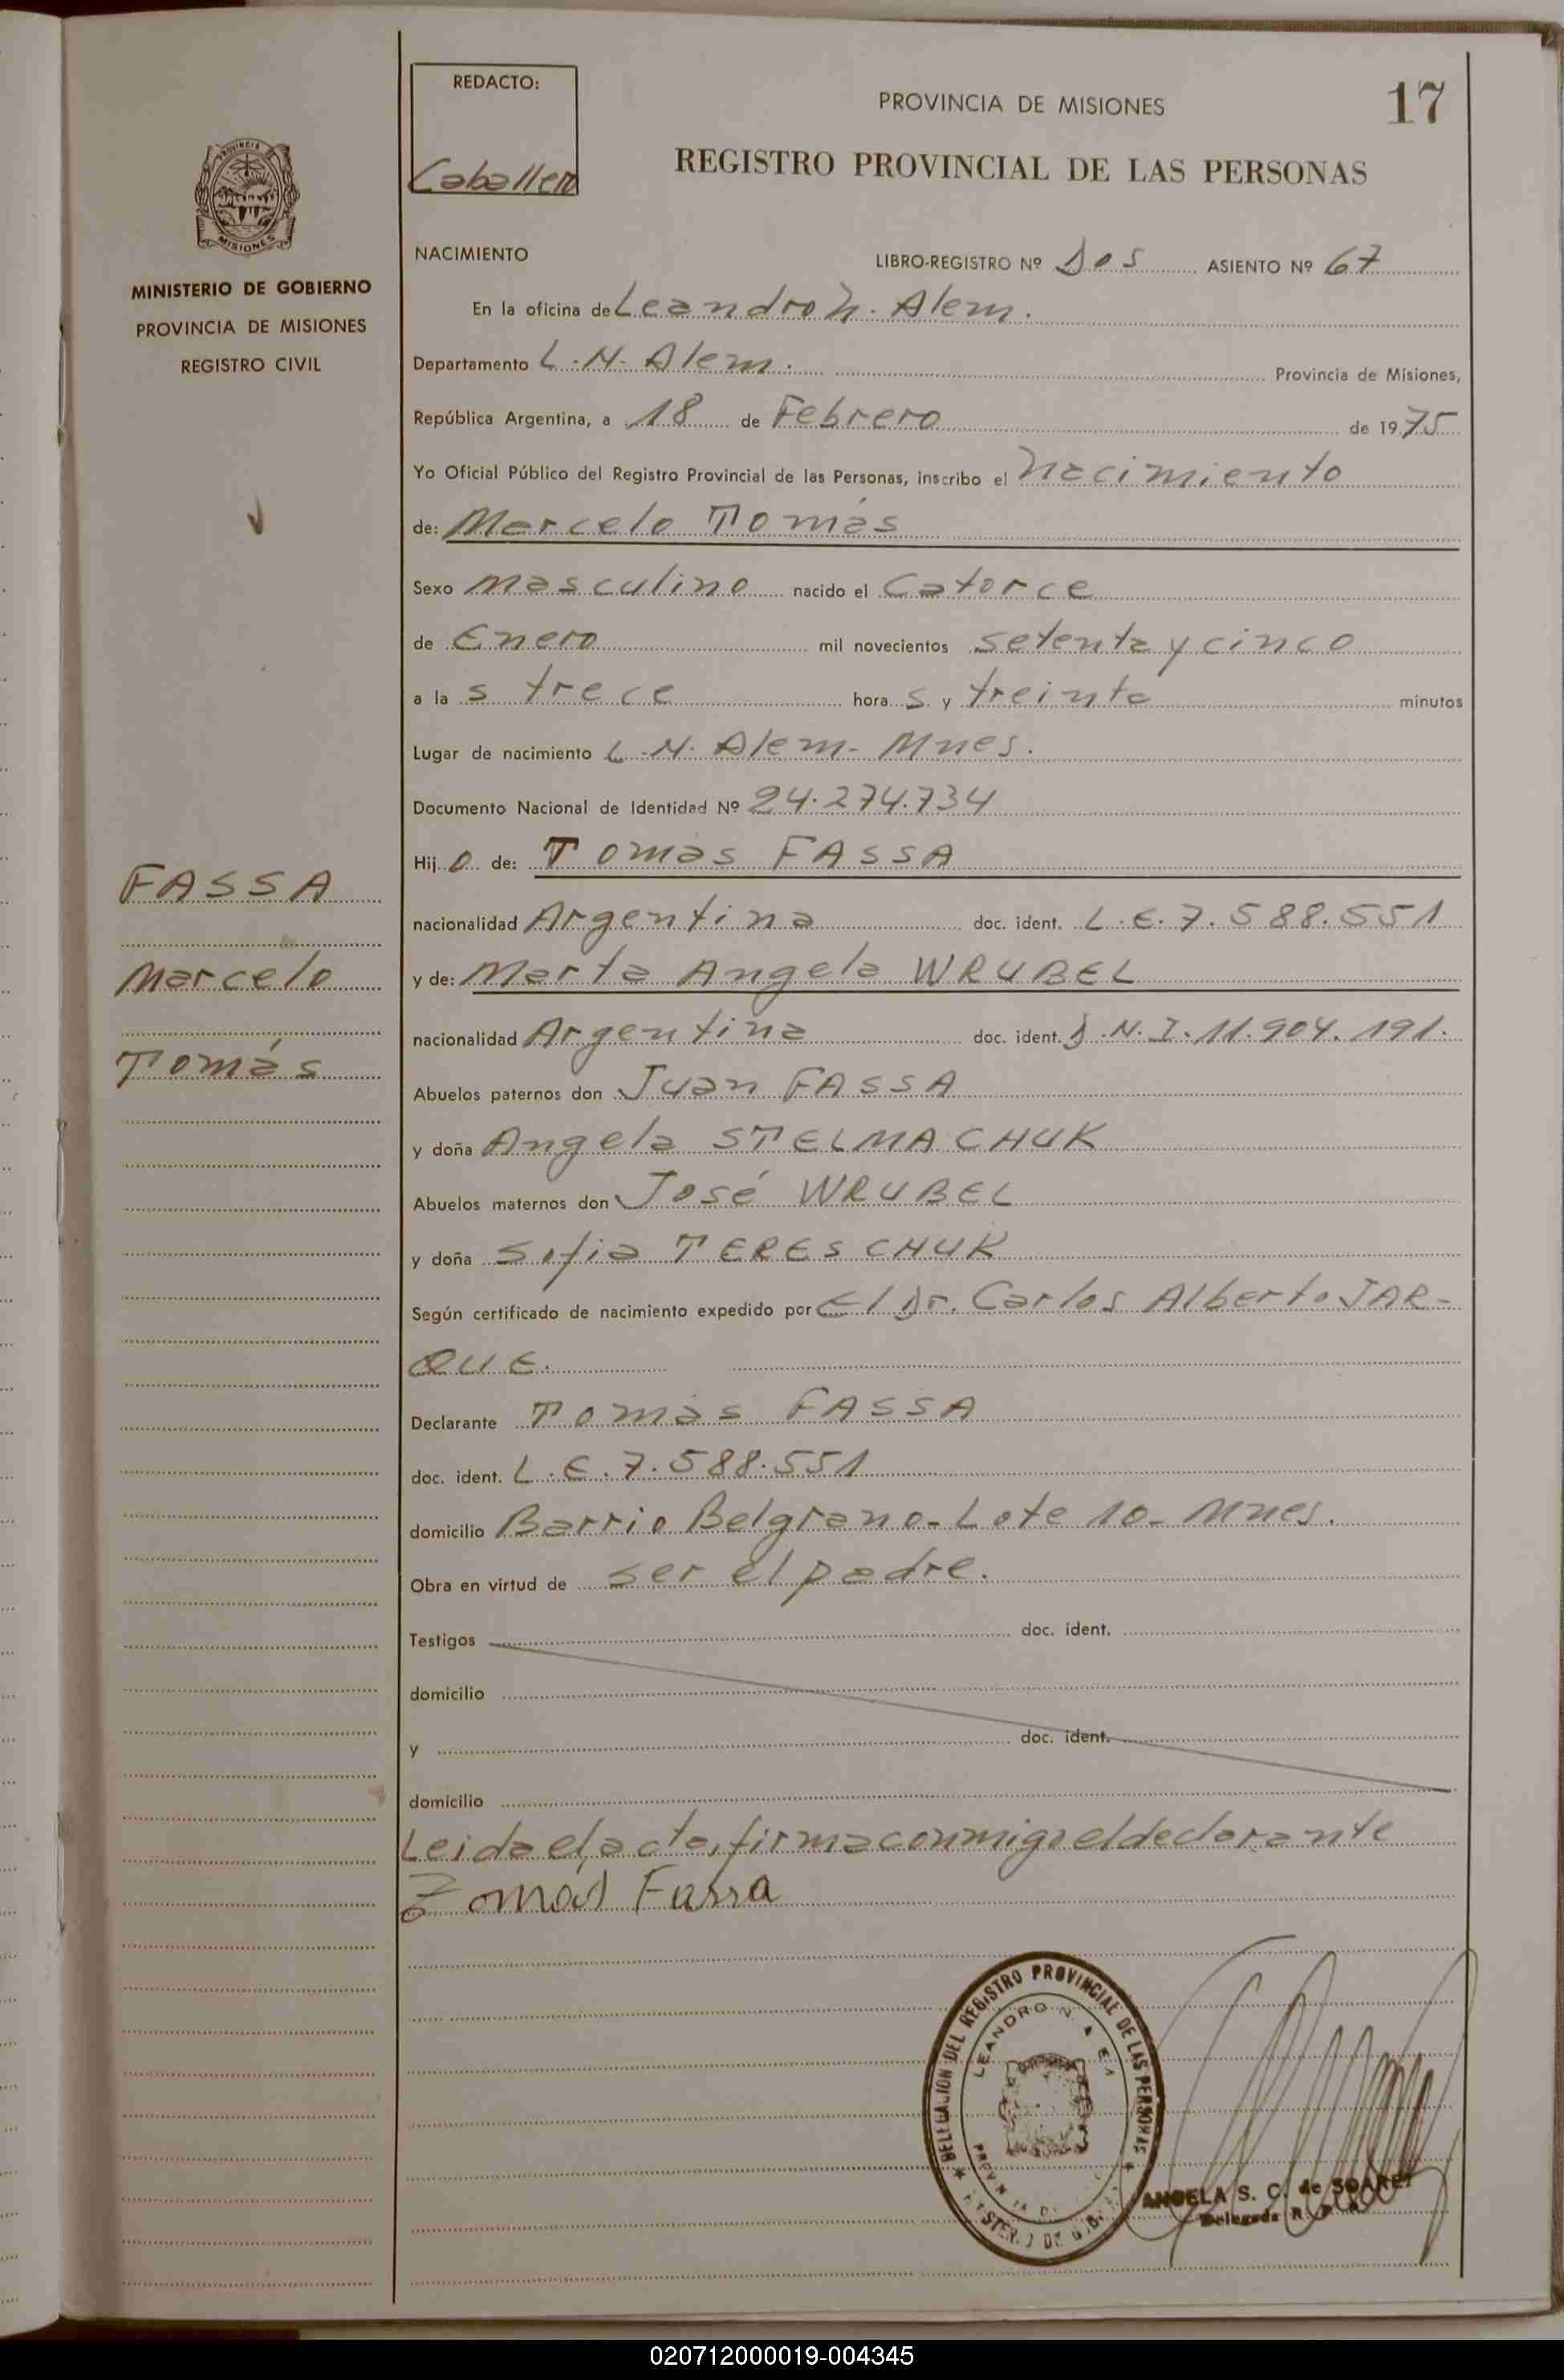 REDACTO:
Caballero
PROVINCIA DE MISIONES
17
REGISTRO PROVINCIAL DE LAS PERSONAS
PROVINCIA
MISIONES
MINISTERIO DE GOBIERNO
PROVINCIA DE MISIONES
REGISTRO CIVIL
NACIMIENTO LIBRO-REGISTRO Nº Dos ASIENTO Nº 67
En la oficina de Leandro N. Alem.
Departamento L.N. Alem. Provincia de Misiones,
República Argentina, a 18 de Febrero de 1975
Yo Oficial Público del Registro Provincial de las Personas, inscribo el nacimiento
de: Marcelo Tomás
Sexo masculino nacido el Catorce
de Enero mil novecientos setenta y cinco
a las trece horas y treinta minutos
Lugar de nacimiento L.N. Alem- Mnes.
Documento Nacional de Identidad Nº 24.274.734
Hijo de: Tomás FASSA
nacionalidad Argentina doc. ident. L.E. 7.588.551
y de: Marta Angela WRUBEL
nacionalidad Argentina doc. ident. D.N.I. 11.904.191.
Abuelos paternos don Juan FASSA
y doña Angela STELMACHUK
Abuelos maternos don José WRUBEL
y doña Sofia TERESCHUK
Según certificado de nacimiento expedido por El Dr. Carlos Alberto JAR-
QUE.
Declarante Tomás FASSA
doc. ident. L.E. 7.588.551
domicilio Barrio Belgrano- Lote 10- Mnes.
Obra en virtud de ser el padre.
Testigos doc. ident.
domicilio
y doc. ident.
domicilio
Leida el acta, firma conmigo el declarante
Tomás Fassa
FASSA
Marcelo
Tomás
DELEGACION DEL REGISTRO PROVINCIAL DE LAS PERSONAS
LEANDRO N.
ANGELA S. C. de SOAREZ
Delegada R. P. P.
020712000019-004345